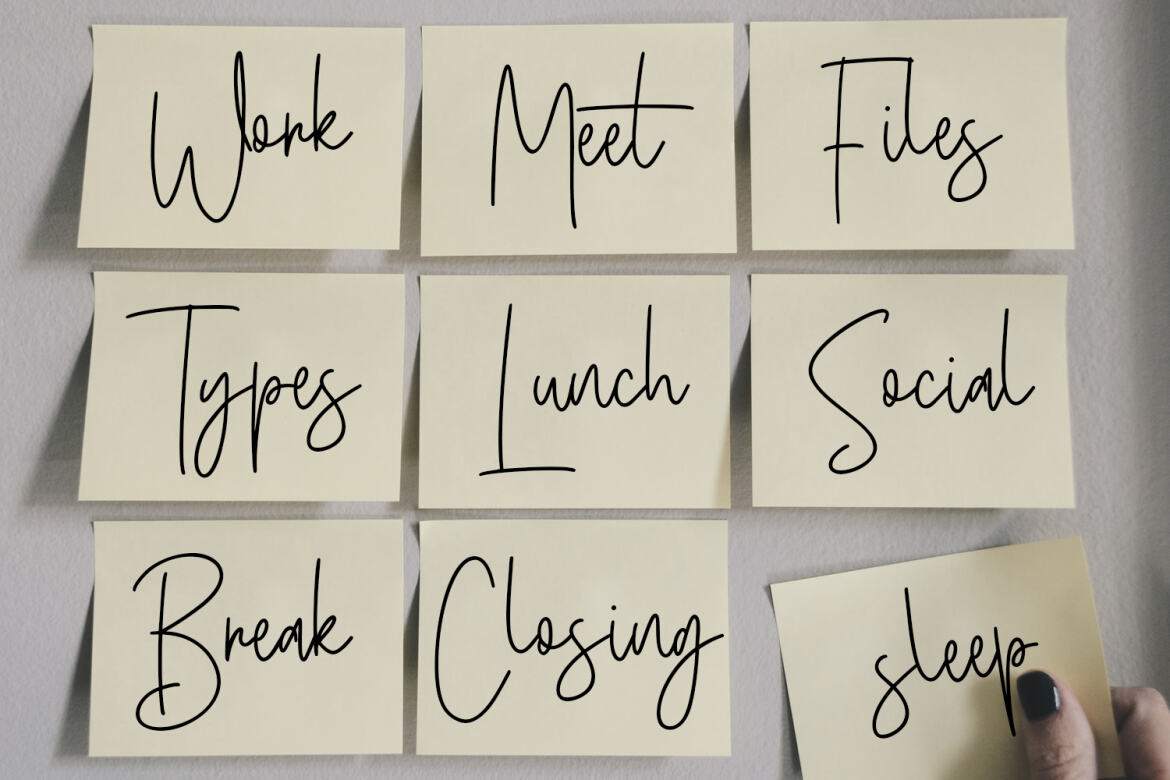 Work
Meet
Files
Types
Lunch
Social
Break
Closing
sleep